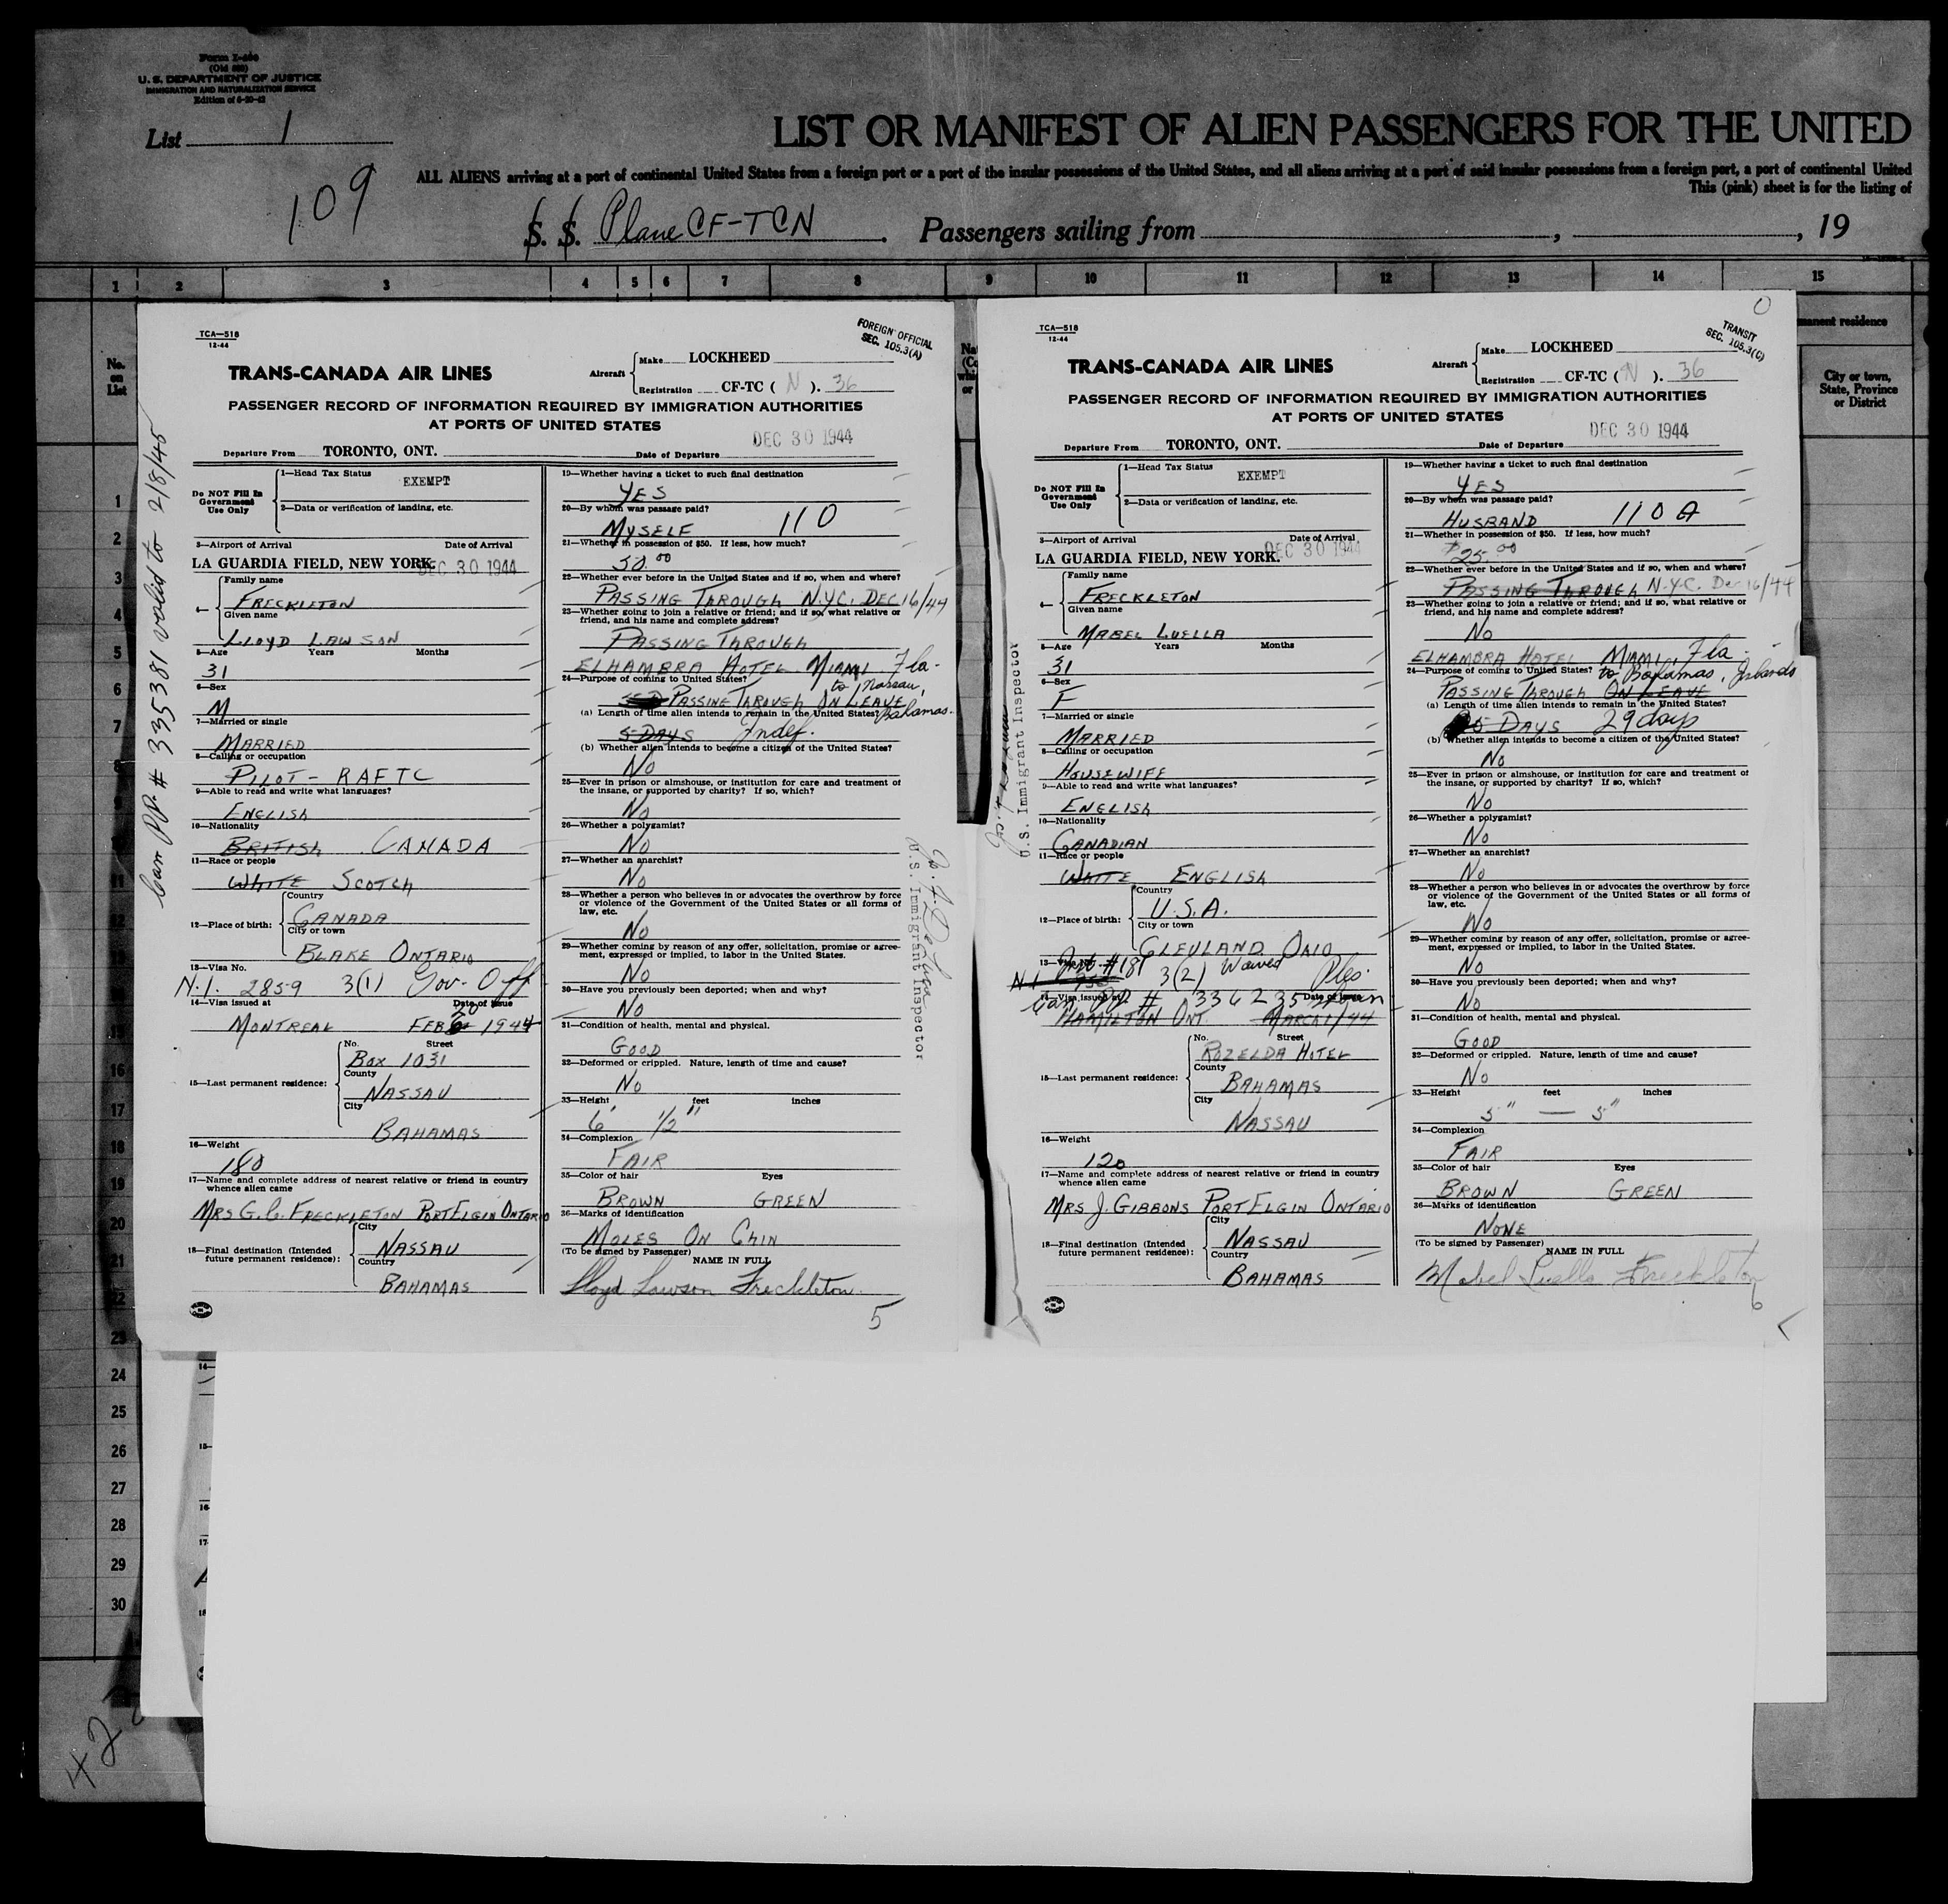 Form I-466
(Old 500)
U. S. DEPARTMENT OF JUSTICE
IMMIGRATION AND NATURALIZATION SERVICE
List 1
109
LIST OR MANIFEST OF ALIEN PASSENGERS FOR THE UNITED
ALL ALIENS arriving at a port of continental United States from a foreign port or a port of the insular possessions of the United States, and all aliens arriving at a port of said insular possessions from a foreign port, a port of continental United
This (pink) sheet is for the listing of
S. S. Plane CF-TCN . Passengers sailing from , , 19
1 2 3 4 5 6 7 8 9 10 11 12 13 14 15
No. on List
manent residence
City or town, State, Province or District
TCA—518
12-44
FOREIGN OFFICIAL
SEC. 105.3(A)
TRANS-CANADA AIR LINES
Aircraft
Make LOCKHEED
Registration CF-TC ( N ). 36
PASSENGER RECORD OF INFORMATION REQUIRED BY IMMIGRATION AUTHORITIES
AT PORTS OF UNITED STATES
DEC 30 1944
Departure From TORONTO, ONT. Date of Departure
Do NOT Fill In
Government
Use Only
1—Head Tax Status
EXEMPT
2—Data or verification of landing, etc.
3—Airport of Arrival Date of Arrival
LA GUARDIA FIELD, NEW YORK. DEC 30 1944
4—
Family name
FRECKLETON
Given name
LLOYD LAWSON
5—Age Years Months
31
6—Sex
M
7—Married or single
MARRIED
8—Calling or occupation
PILOT - RAFTC
9—Able to read and write what languages?
ENGLISH
10—Nationality
BRITISH CANADA
11—Race or people
WHITE SCOTCH
12—Place of birth:
Country
CANADA
City or town
BLAKE ONTARIO
13—Visa No.
N.I. 2859 3(1) Gov. Off
14—Visa issued at Date of Issue
MONTREAL FEB 20 1944
15—Last permanent residence:
No. Street
Box 1031
County
NASSAU
City
BAHAMAS
16—Weight
180
17—Name and complete address of nearest relative or friend in country
whence alien came
MRS G.C. FRECKLETON PORT ELGIN ONTARIO
18—Final destination (Intended
future permanent residence):
City
NASSAU
Country
BAHAMAS
19—Whether having a ticket to such final destination
YES
20—By whom was passage paid?
MYSELF 110
21—Whether in possession of $50. If less, how much?
50.00
22—Whether ever before in the United States and if so, when and where?
PASSING THROUGH N.Y.C. DEC 16/44
23—Whether going to join a relative or friend; and if so, what relative or
friend, and his name and complete address?
PASSING THROUGH
ELHAMBRA HOTEL MIAMI Fla-
24—Purpose of coming to United States? to Nassau,
PASSING THROUGH ON LEAVE Bahamas.
(a) Length of time alien intends to remain in the United States?
5 DAYS Indef.
(b) Whether alien intends to become a citizen of the United States?
NO
25—Ever in prison or almshouse, or institution for care and treatment of
the insane, or supported by charity? If so, which?
NO
26—Whether a polygamist?
NO
27—Whether an anarchist?
NO
28—Whether a person who believes in or advocates the overthrow by force
or violence of the Government of the United States or all forms of
law, etc.
NO
29—Whether coming by reason of any offer, solicitation, promise or agree-
ment, expressed or implied, to labor in the United States.
NO
30—Have you previously been deported; when and why?
NO
31—Condition of health, mental and physical.
GOOD
32—Deformed or crippled. Nature, length of time and cause?
NO
33—Height feet inches
6' 1/2"
34—Complexion
FAIR
35—Color of hair Eyes
BROWN GREEN
36—Marks of identification
MOLES ON CHIN
(To be signed by Passenger) NAME IN FULL
Lloyd Lawson Freckleton
5
Can PP. # 335381 valid to 2/8/45
U.S. Immigrant Inspector
TCA—518
12-44
TRANSIT
SEC. 105.3(C)
TRANS-CANADA AIR LINES
Aircraft
Make LOCKHEED
Registration CF-TC ( N ). 36
PASSENGER RECORD OF INFORMATION REQUIRED BY IMMIGRATION AUTHORITIES
AT PORTS OF UNITED STATES
DEC 30 1944
Departure From TORONTO, ONT. Date of Departure
Do NOT Fill In
Government
Use Only
1—Head Tax Status
EXEMPT
2—Data or verification of landing, etc.
3—Airport of Arrival Date of Arrival
LA GUARDIA FIELD, NEW YORK. DEC 30 1944
4—
Family name
FRECKLETON
Given name
MABEL LUELLA
5—Age Years Months
31
6—Sex
F
7—Married or single
MARRIED
8—Calling or occupation
HOUSEWIFE
9—Able to read and write what languages?
ENGLISH
10—Nationality
CANADIAN
11—Race or people
WHITE ENGLISH
12—Place of birth:
Country
U.S.A.
City or town
CLEVLAND OHIO
13— #181 3(2) Waived
14—Visa issued at Date of Issue
Can PP # 336235
HAMILTON ONT. MARCH 1/44
15—Last permanent residence:
No. Street
ROZELDA HOTEL
County
BAHAMAS
City
NASSAU
16—Weight
120
17—Name and complete address of nearest relative or friend in country
whence alien came
MRS J. GIBBONS PORT ELGIN ONTARIO
18—Final destination (Intended
future permanent residence):
City
NASSAU
Country
BAHAMAS
19—Whether having a ticket to such final destination
YES
20—By whom was passage paid?
HUSBAND 110 A
21—Whether in possession of $50. If less, how much?
$25.00
22—Whether ever before in the United States and if so, when and where?
PASSING THROUGH N.Y.C. Dec 16/44
23—Whether going to join a relative or friend; and if so, what relative or
friend, and his name and complete address?
NO
ELHAMBRA HOTEL MIAMI, Fla-
24—Purpose of coming to United States? to Bahamas, Islands
PASSING THROUGH ON LEAVE
(a) Length of time alien intends to remain in the United States?
DAYS 29 days
(b) Whether alien intends to become a citizen of the United States?
NO
25—Ever in prison or almshouse, or institution for care and treatment of
the insane, or supported by charity? If so, which?
NO
26—Whether a polygamist?
NO
27—Whether an anarchist?
NO
28—Whether a person who believes in or advocates the overthrow by force
or violence of the Government of the United States or all forms of
law, etc.
NO
29—Whether coming by reason of any offer, solicitation, promise or agree-
ment, expressed or implied, to labor in the United States.
NO
30—Have you previously been deported; when and why?
NO
31—Condition of health, mental and physical.
GOOD
32—Deformed or crippled. Nature, length of time and cause?
NO
33—Height feet inches
5" — 5"
34—Complexion
FAIR
35—Color of hair Eyes
BROWN GREEN
36—Marks of identification
NONE
(To be signed by Passenger) NAME IN FULL
Mabel Luella Freckleton
6
U.S. Immigrant Inspector
1
2
3
4
5
6
7
8
9
11
12
15
16
17
18
19
20
21
22
23
24
25
26
27
28
29
30
42